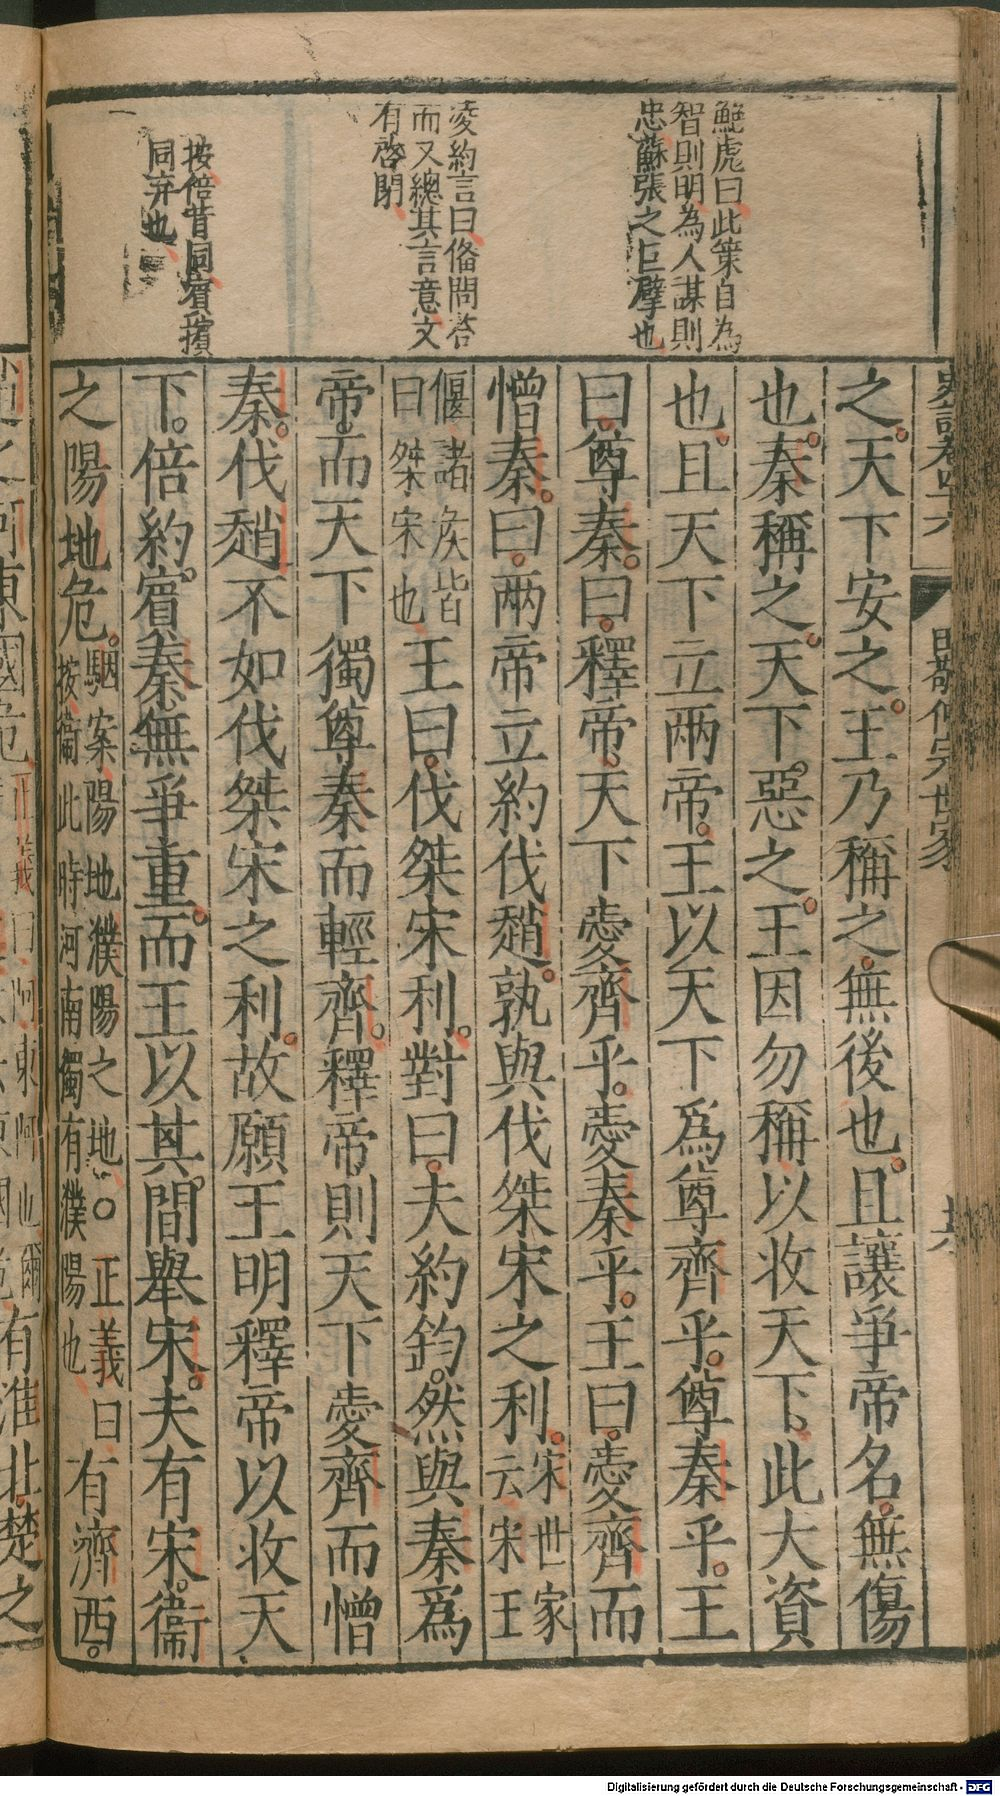 鮑虎曰此策自為
智則明為人謀則
忠蘇張之巨擘也
凌約言曰偹問答
而又總其言意文
有啓閉
按倍背同賓擯
同弃也
史記卷四十六 田敬仲完世家
之。天下安之。王乃稱之。無後也。且讓爭帝名。無傷
也。秦稱之。天下惡之。王因勿稱以收天下。此大資
也。且天下立兩帝。王以天下爲尊齊乎。尊秦乎。王
曰。尊秦。曰。釋帝。天下愛齊乎。愛秦乎。王曰。愛齊而
憎秦。曰。兩帝立約伐趙。孰與伐桀宋之利。宋世家云宋王
偃諸侯皆曰桀宋也王曰。伐桀宋利。對曰。夫約鈞。然與秦爲
帝。而天下獨尊秦而輕齊。釋帝則天下愛齊而憎
秦。伐趙不如伐桀宋之利。故願王明釋帝以收天
下。倍約。賓秦無爭重。而王以其間舉宋。夫有宋。衞
之陽地危。駰案陽地濮陽之地○正義曰按衞此時河南獨有濮陽也有濟西。
有淮北。楚之
Digitalisierung gefördert durch die Deutsche Forschungsgemeinschaft - DFG